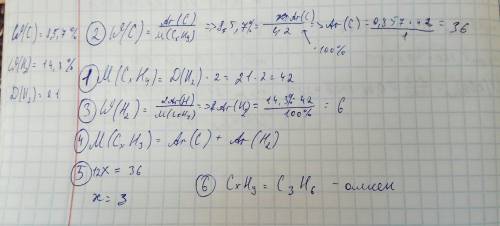 W(C) = 85,7%
W(H₂) = 14,3%
D(H₂) = 21
② W(C) = Ar(C) / M(CxHy) => 85,7% = x·Ar(C) / 42 · 100% => Ar(C) = 0,857·42 / 1 = 36
① M(CxHy) = D(H₂) · 2 = 21·2 = 42
③ W(H₂) = 2Ar(H) / M(CxHy) => 2Ar(H₂) = 14,3%·42 / 100% = 6
④ M(CxHy) = Ar(C) + Ar(H₂)
⑤ 12x = 36
x = 3
⑥ CxHy = C₃H₆ - алкен